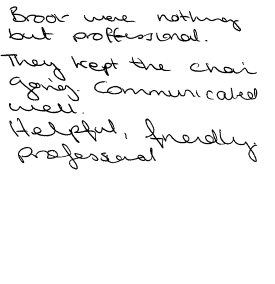 Broor were nothing
but proffessional.
They kept the chai
going. Communicated
well.
Helpful, friendly,
professional